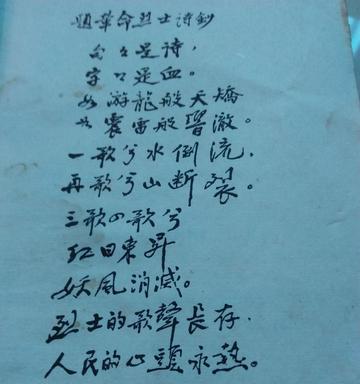 题革命烈士诗鈔
句々是诗，
字々是血。
如游龍般天矯
如震雷般響澈。
一歌兮水倒流，
再歌兮山断裂。
三歌四歌兮
红日東昇
妖風消滅。
烈士的歌聲長存，
人民的心頭永熱。